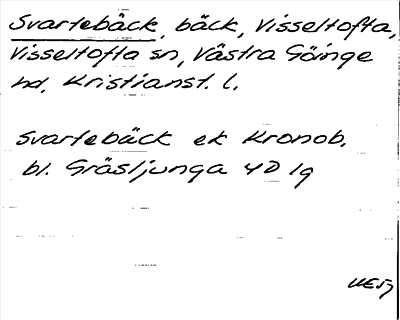 Svartebäck, bäck, Visseltofta,
Visseltofta sn, Västra Göinge
hd, Kristianst. l.
Svartebäck ek Kronob.
bl. Gräsljunga 4D 1g